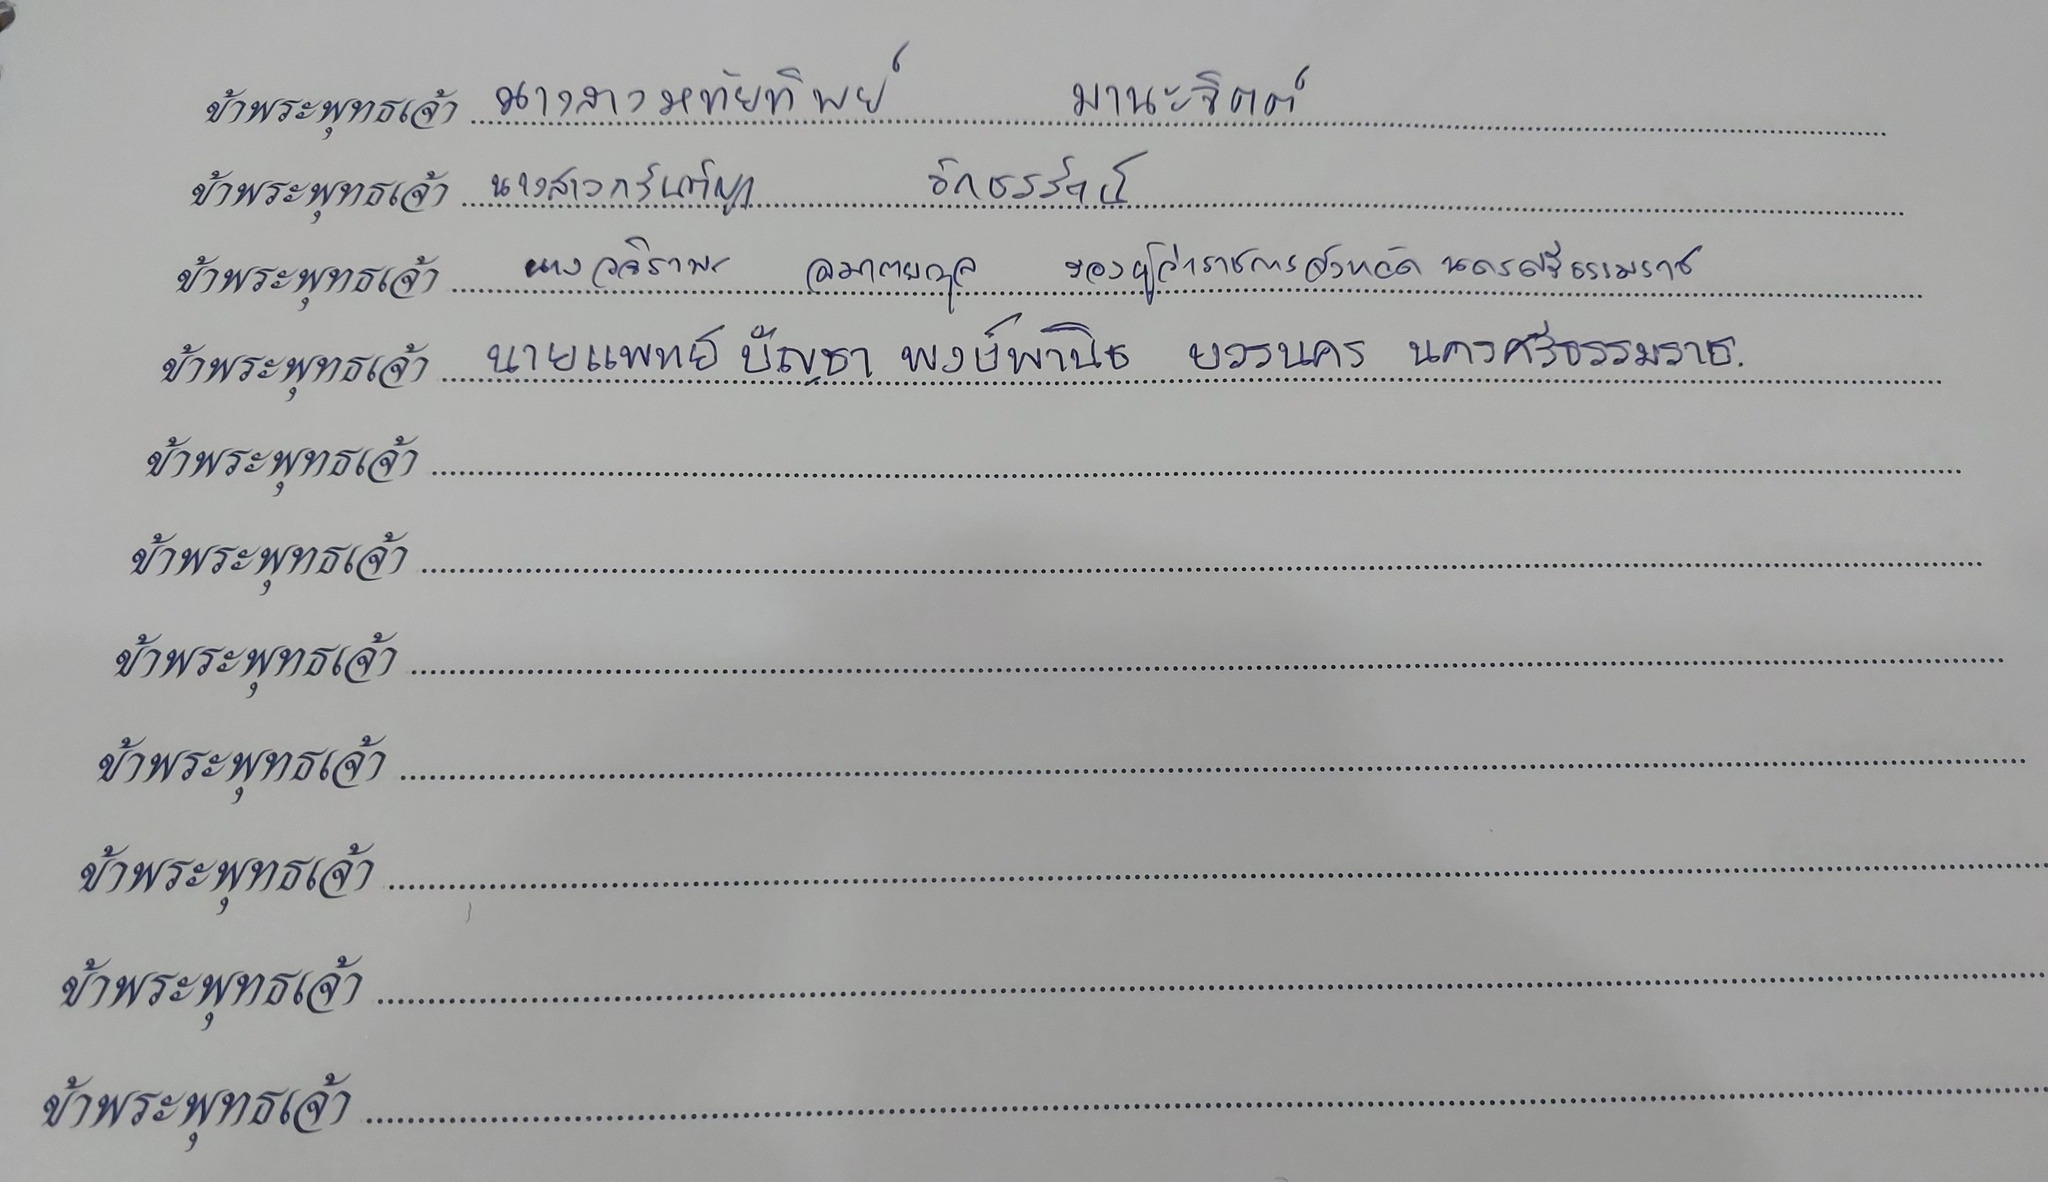 ข้าพระพุทธเจ้า นางสาวหทัยทิพย์ มานะจิตต์
ข้าพระพุทธเจ้า นางสาว
ข้าพระพุทธเจ้า นาง อมาตยกุล รองผู้ว่าราชการจังหวัด นครศรีธรรมราช
ข้าพระพุทธเจ้า นายแพทย์ บัญชา พงษ์พานิช บวรนคร นครศรีธรรมราช.
ข้าพระพุทธเจ้า
ข้าพระพุทธเจ้า
ข้าพระพุทธเจ้า
ข้าพระพุทธเจ้า
ข้าพระพุทธเจ้า
ข้าพระพุทธเจ้า
ข้าพระพุทธเจ้า